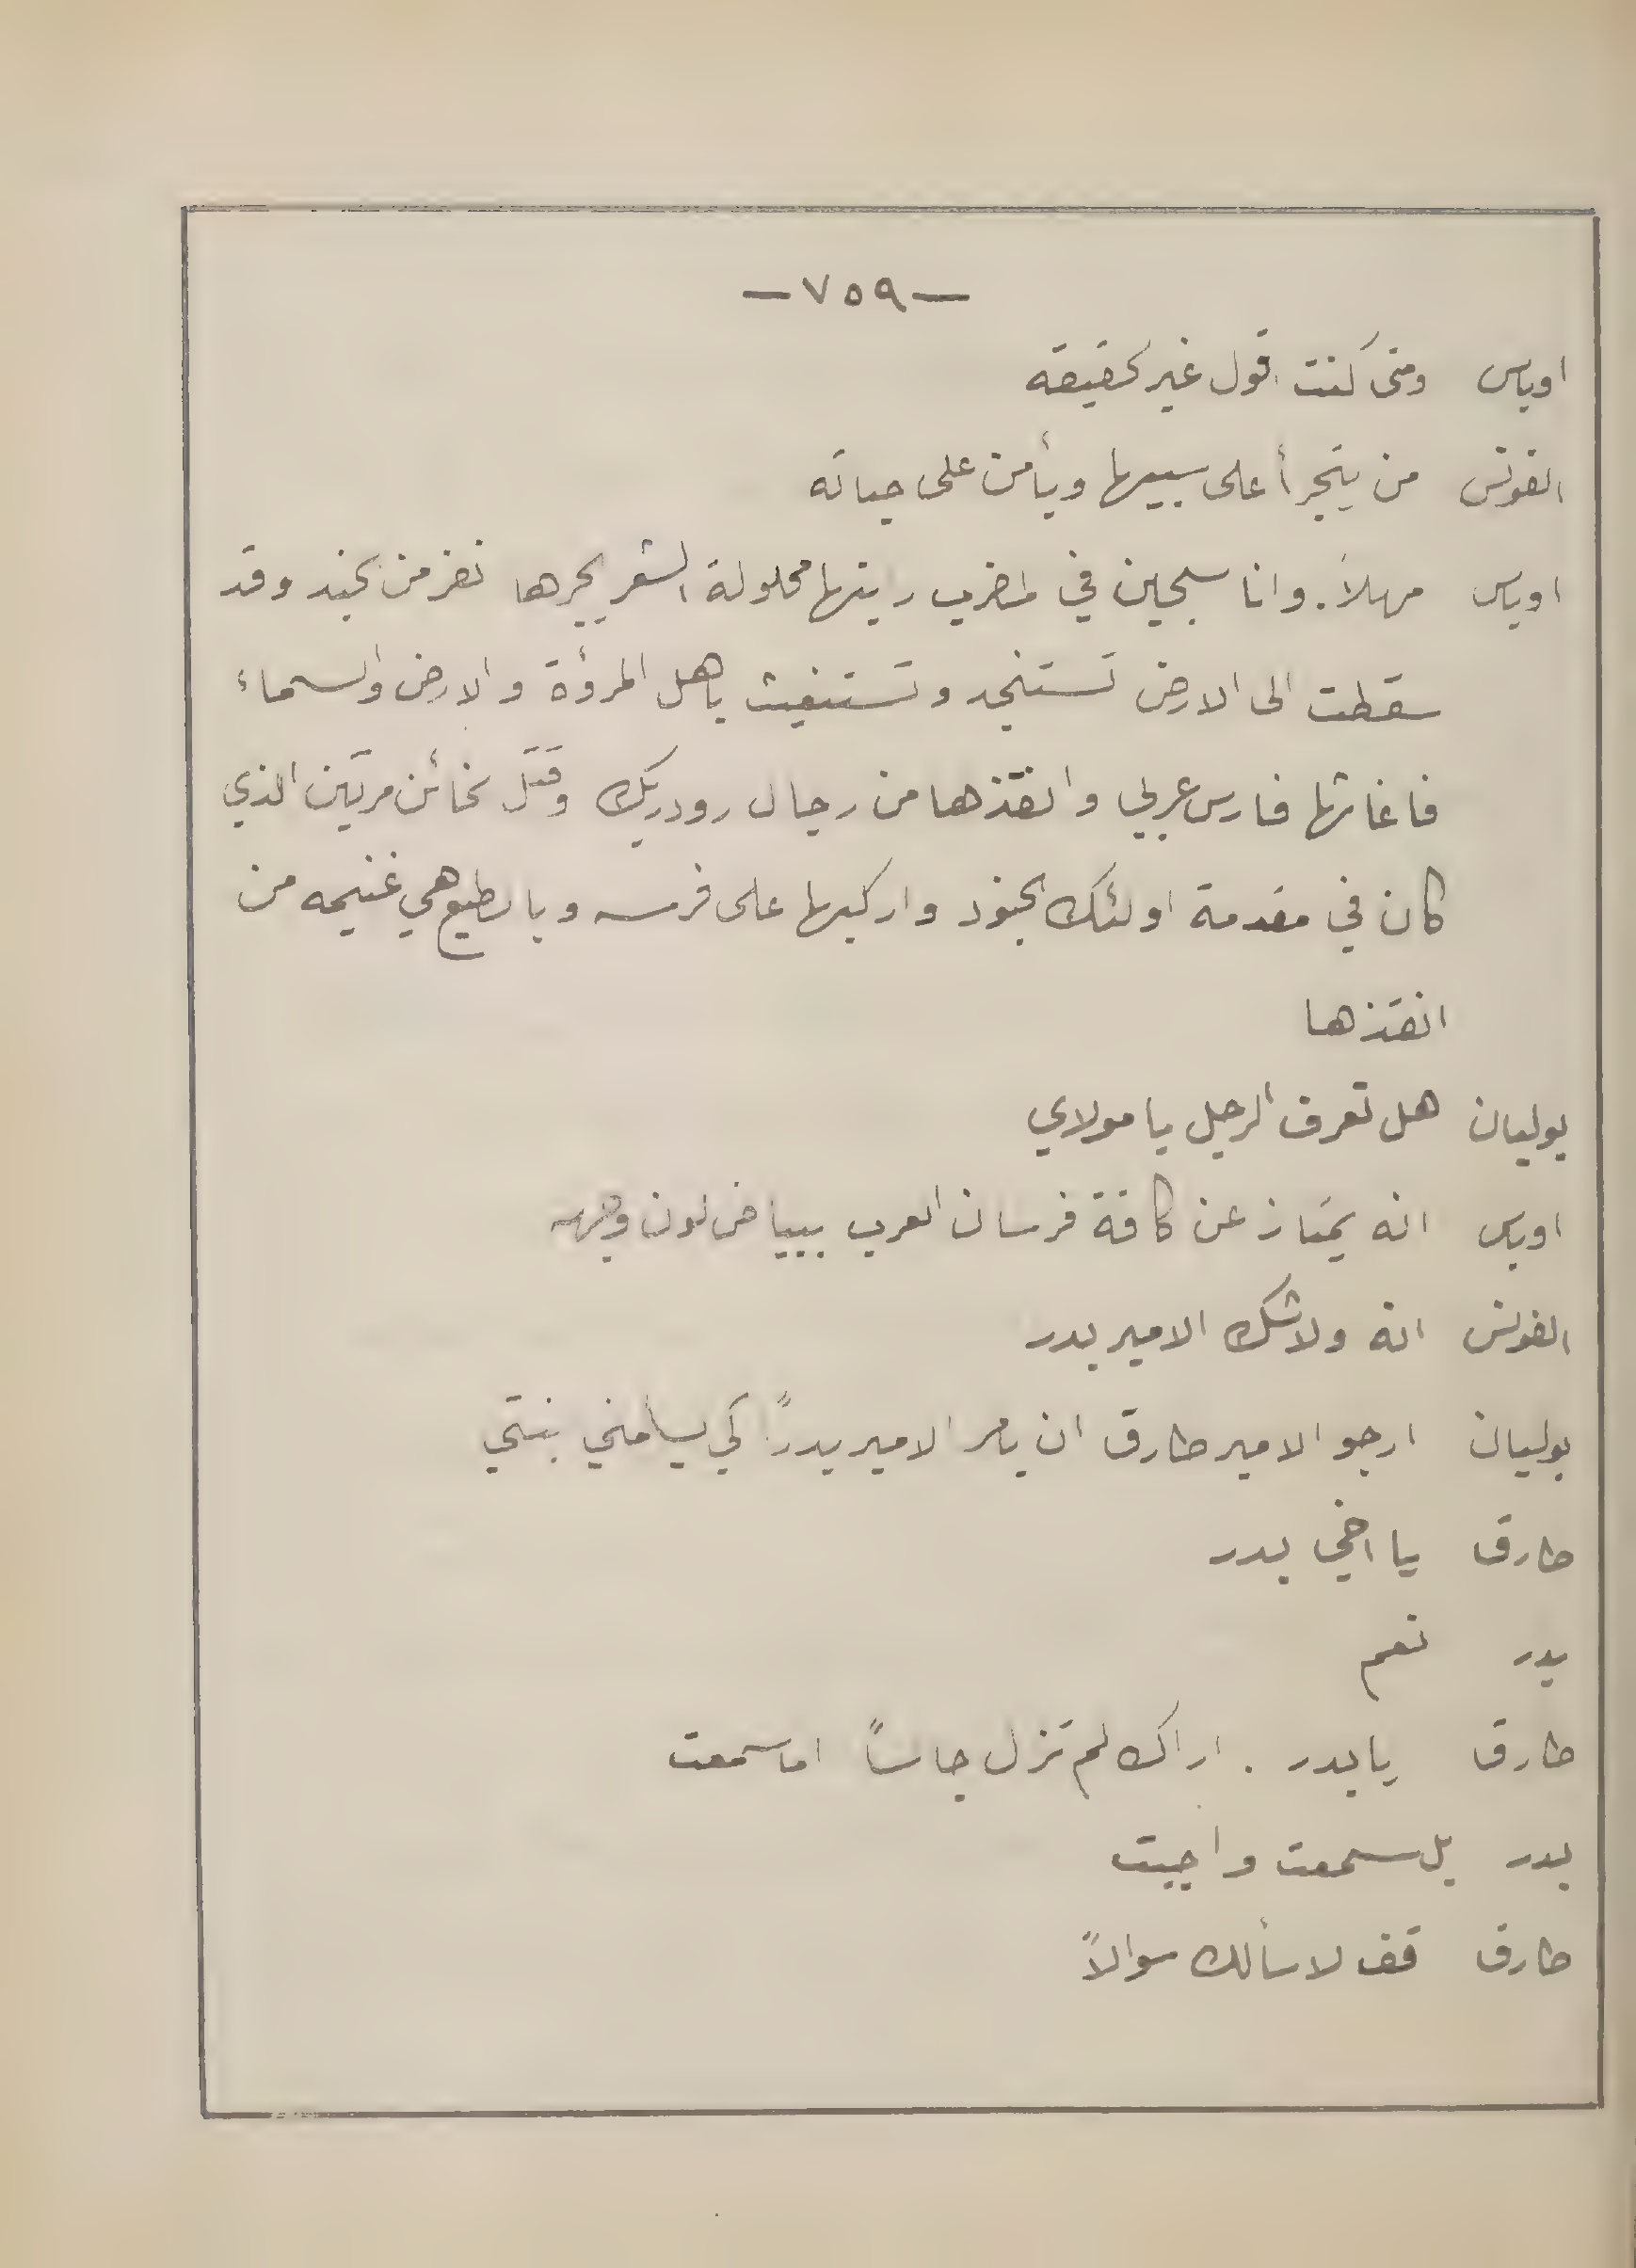 —٧٥٩—
اوباس ومتى كنت اقول غير الحقيقه
الفونس من يتجرأ على سبيها ويأمن على حياته
اوباس مهلاً. وانا سجين في المضرب رايتها محلولة الشعر يجرها نفر من الجند وقد
سقطت الى الارض تستنجد وتستغيث باهل المرؤة والارض والسماء
فاغاثها فارس عربي وانقذها من رجال رودريك وقتل الخائن مرتين الذي
كان في مقدمة اولئك الجنود واركبها على فرسه وبالطبع هي غنيمه من
انقذها
يوليان هل تعرف الرجل يا مولاي
اوباس انه يمتاز عن كافة فرسان العرب ببياض لون وجهه
الفونس انه ولا شك الامير بدر
يوليان ارجو الامير طارق ان يامر الامير بدرً كي يسامني بنتي
طارق يا اخي بدر
بدر نعم
طارق يا بدر . اراك لم تزل جالساً اما سمعت
بدر بل سمعت واجبت
طارق قف لاسألك سوالاً